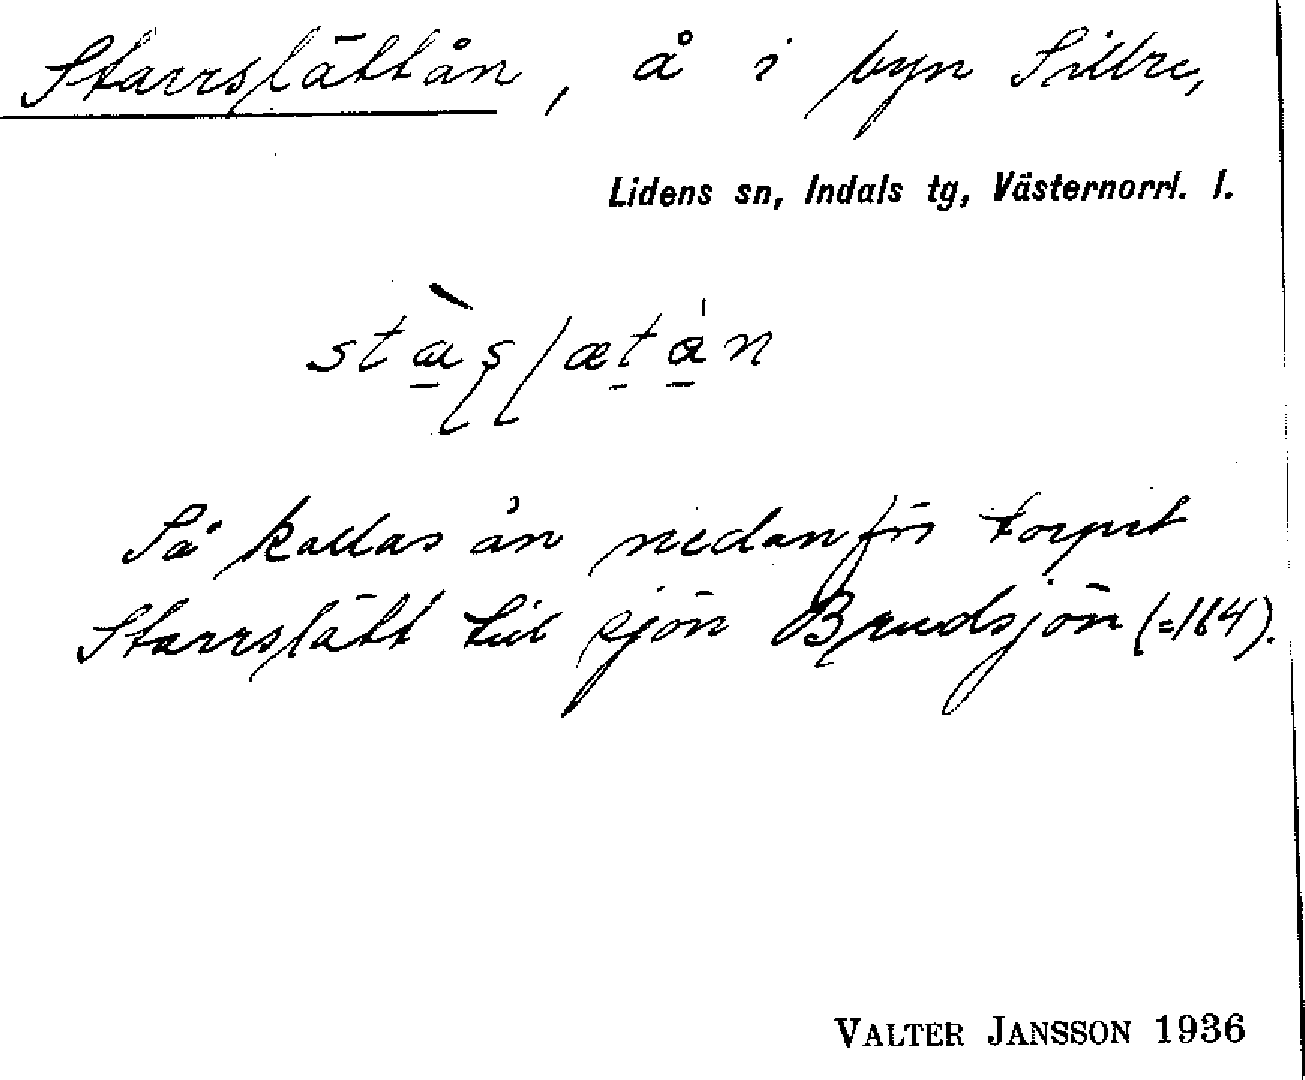 Starrslättån, å i byn Sillre,
Lidens sn, Indals tg, Västernorrl. l.
Så kallas ån nedanför torpet
Starrslätt till sjön Brudsjön (=164).
VALTER JANSSON 1936